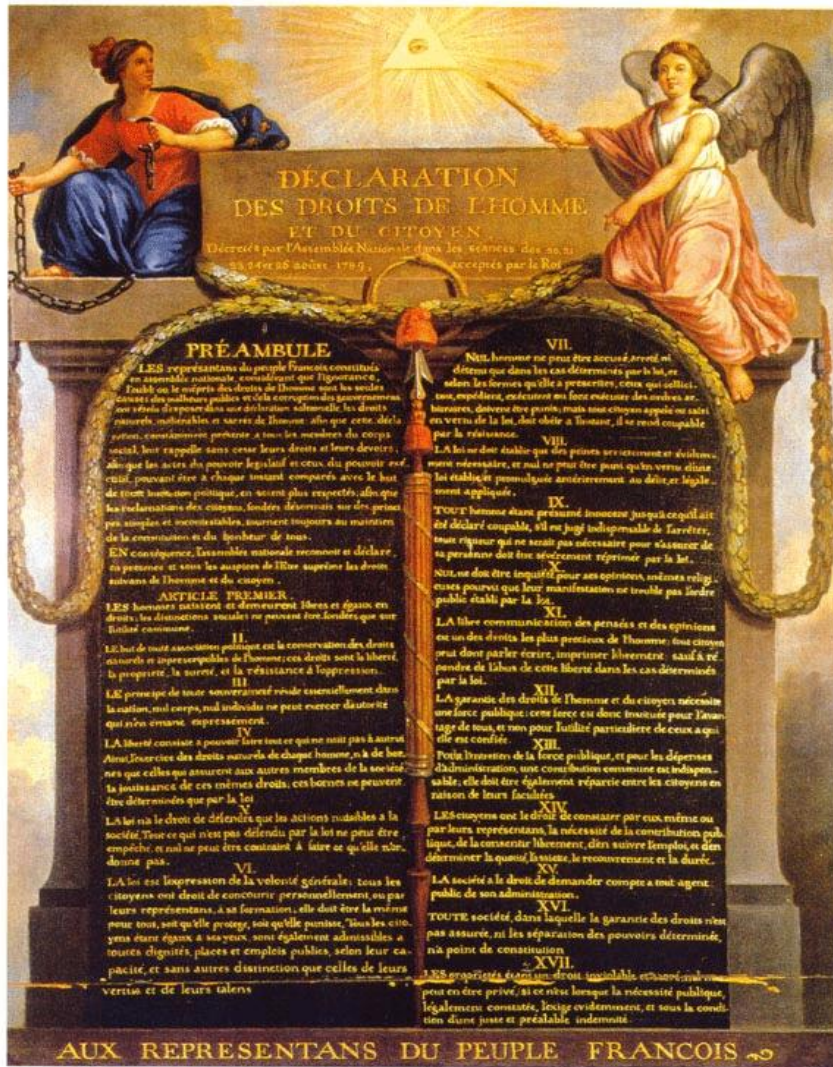 DÉCLARATION
DES DROITS DE L'HOMME
ET DU CITOYEN,
Décretés par l'Assemblée Nationale dans les séances des 20, 21
23, 24 et 26 août 1789, acceptés par le Roi
PRÉAMBULE
LES représentans du peuple François constitués
en assemblée nationale, considérant que l'ignorance,
l'oubli ou le mépris des droits de l'homme sont les seules
causes des malheurs publics et de la corruption des gouvernemens
ont résolu d'exposer dans une déclaration solemnelle, les droits
naturels, inaliénables et sacrés de l'homme; afin que cette décla
ration, constamment présente a tous les membres du corps
social, leur rappelle sans cesse leurs droits et leurs devoirs;
afin que les actes du pouvoir legislatif et ceux du pouvoir exé
cutif, pouvant être a chaque instant comparés avec le but
de toute institution politique, en soient plus respectés; afin que
les reclamations des citoyens, fondées désormais sur des princi
pes simples et incontestables, tournent toujours au maintien
de la constitution et du bonheur de tous.
EN conséquence, l'assemblée nationale reconnoît et déclare,
en presence et sous les auspices de l'Etre suprême les droits
suivans de l'homme et du citoyen.
ARTICLE PREMIER.
LES hommes naissent et demeurent libres et égaux en
droits; les distinctions sociales ne peuvent être fondées que sur
l'utilité commune.
II.
LE but de toute association politique est la conservation des droits
naturels et imprescriptibles de l'homme; ces droits sont la liberté,
la propriété, la sureté, et la résistance à l'oppression.
III.
LE principe de toute souveraineté réside essentiellement dans
la nation, nul corps, nul individu ne peut exercer d'autorité
qui n'en émane expressément.
IV.
LA liberté consiste a pouvoir faire tout ce qui ne nuit pas à autrui
Ainsi, l'exercice des droits naturels de chaque homme, n'a de bor-
nes que celles qui assurent aux autres membres de la société
la jouissance de ces mêmes droits; ces bornes ne peuvent
être déterminées que par la loi
V.
LA loi n'a le droit de défendre que les actions nuisibles a la
société. Tout ce qui n'est pas défendu par la loi ne peut être
empêché, et nul ne peut être contraint à faire ce qu'elle n'or-
donne pas.
VI.
LA loi est l'expression de la volonté générale; tous les
citoyens ont droit de concourir personnellement, ou par
leurs représentans, à sa formation; elle doit être la même
pour tous, soit qu'elle protege, soit qu'elle punisse. Tous les cito-
yens étant égaux a ses yeux, sont également admissibles a
toutes dignités, places et emplois publics, selon leur ca-
pacité, et sans autres distinction que celles de leurs
vertus et de leurs talens
VII.
NUL homme ne peut être accusé, arreté, ni
détenu que dans les cas déterminés par la loi, et
selon les formes qu'elle a prescrites, ceux qui sollici-
tent, expédient, exécutent ou font exécuter des ordres ar-
bitraires, doivent être punis; mais tout citoyen appelé ou saisi
en vertu de la loi, doit obéir a l'instant, il se rend coupable
par la résistance.
VIII.
LA loi ne doit établir que des peines strictement et évidem-
ment nécessaire, et nul ne peut être puni qu'en vertu d'une
loi établie, et promulguée antérierement au délit, et légale-
ment appliquée.
IX.
TOUT homme étant présumé innocent jusqu'a ce qu'il ait
été déclaré coupable, s'il est jugé indispensable de l'arrêter,
toute rigueur qui ne serait pas nécessaire pour s'assurer de
sa personne doit être sévèrement réprimée par la loi.
X.
NUL ne doit être inquiété pour ses opinions, mêmes religi-
euses pourvu que leur manifestation ne trouble pas l'ordre
public établi par la loi.
XI.
LA libre communication des pensées et des opinions
est un des droits les plus precieux de l'homme: tout citoyen
peut donc parler écrire, imprimer librement: sauf à ré-
pondre de l'abus de cette liberté dans les cas déterminés
par la loi.
XII.
LA garantie des droits de l'homme et du citoyen nécessite
une force publique: cette force est donc instituée pour l'avan-
tage de tous, et non pour l'utilité particuliere de ceux a qui
elle est confiée.
XIII.
Pour l'entretien de la force publique, et pour les dépenses
d'administration, une contribution commune est indispen-
sable; elle doit être également répartie entre les citoyens en
raison de leurs facultées
XIV.
LES citoyens ont le droit de constater par eux même ou
par leurs représentans, la nécessité de la contribution pub-
lique, de la consentir librement, d'en suivre l'emploi, et d'en
déterminer la quotité, l'assiette, le recouvrement et la durée.
XV.
LA société a le droit de demander compte a tout agent
public de son administration.
XVI.
TOUTE société, dans laquelle la garantie des droits n'est
pas assurée, ni les séparation des pouvoirs déterminée,
n'a point de constitution
XVII.
LES propriétés étant un droit inviolable et sacré, nul ne
peut en être privé, si ce n'est lorsque la nécessité publique,
légalement constatée, l'exige evidemment, et sous la condi-
tion d'une juste et préalable indemnité.
AUX REPRESENTANS DU PEUPLE FRANCOIS